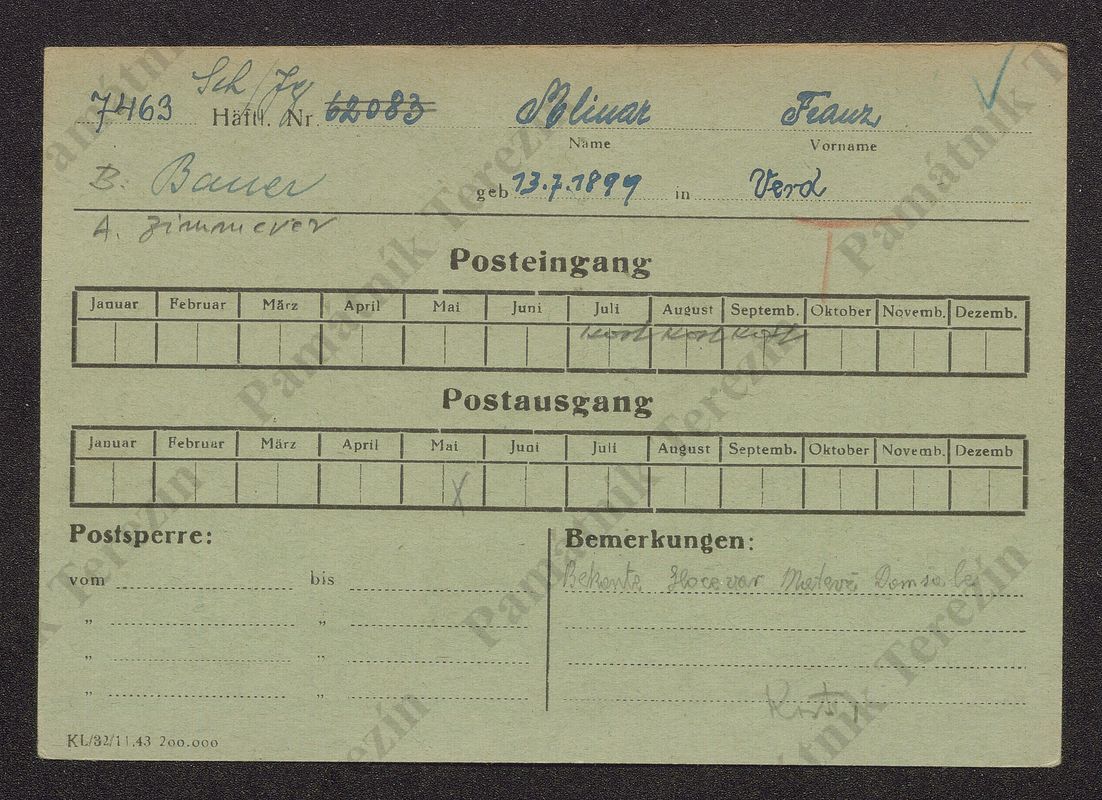 Sch/Jg
7463 Häftl. Nr. 62083 Mlinar Franz
Name Vorname
B: Bauer geb 13.7.1899 in Verd
A. Zimmerer
T
Posteingang
Januar Februar März April Mai Juni Juli August Septemb. Oktober Novemb. Dezemb.
Postausgang
Januar Februar März April Mai Juni Juli August Septemb. Oktober Novemb. Dezemb
X
Postsperre: Bemerkungen:
vom bis
Bekante Hocevar Matevž Domžale
„ „
„ „
„ „
KL/32/11.43 200.000
Památník Terezín